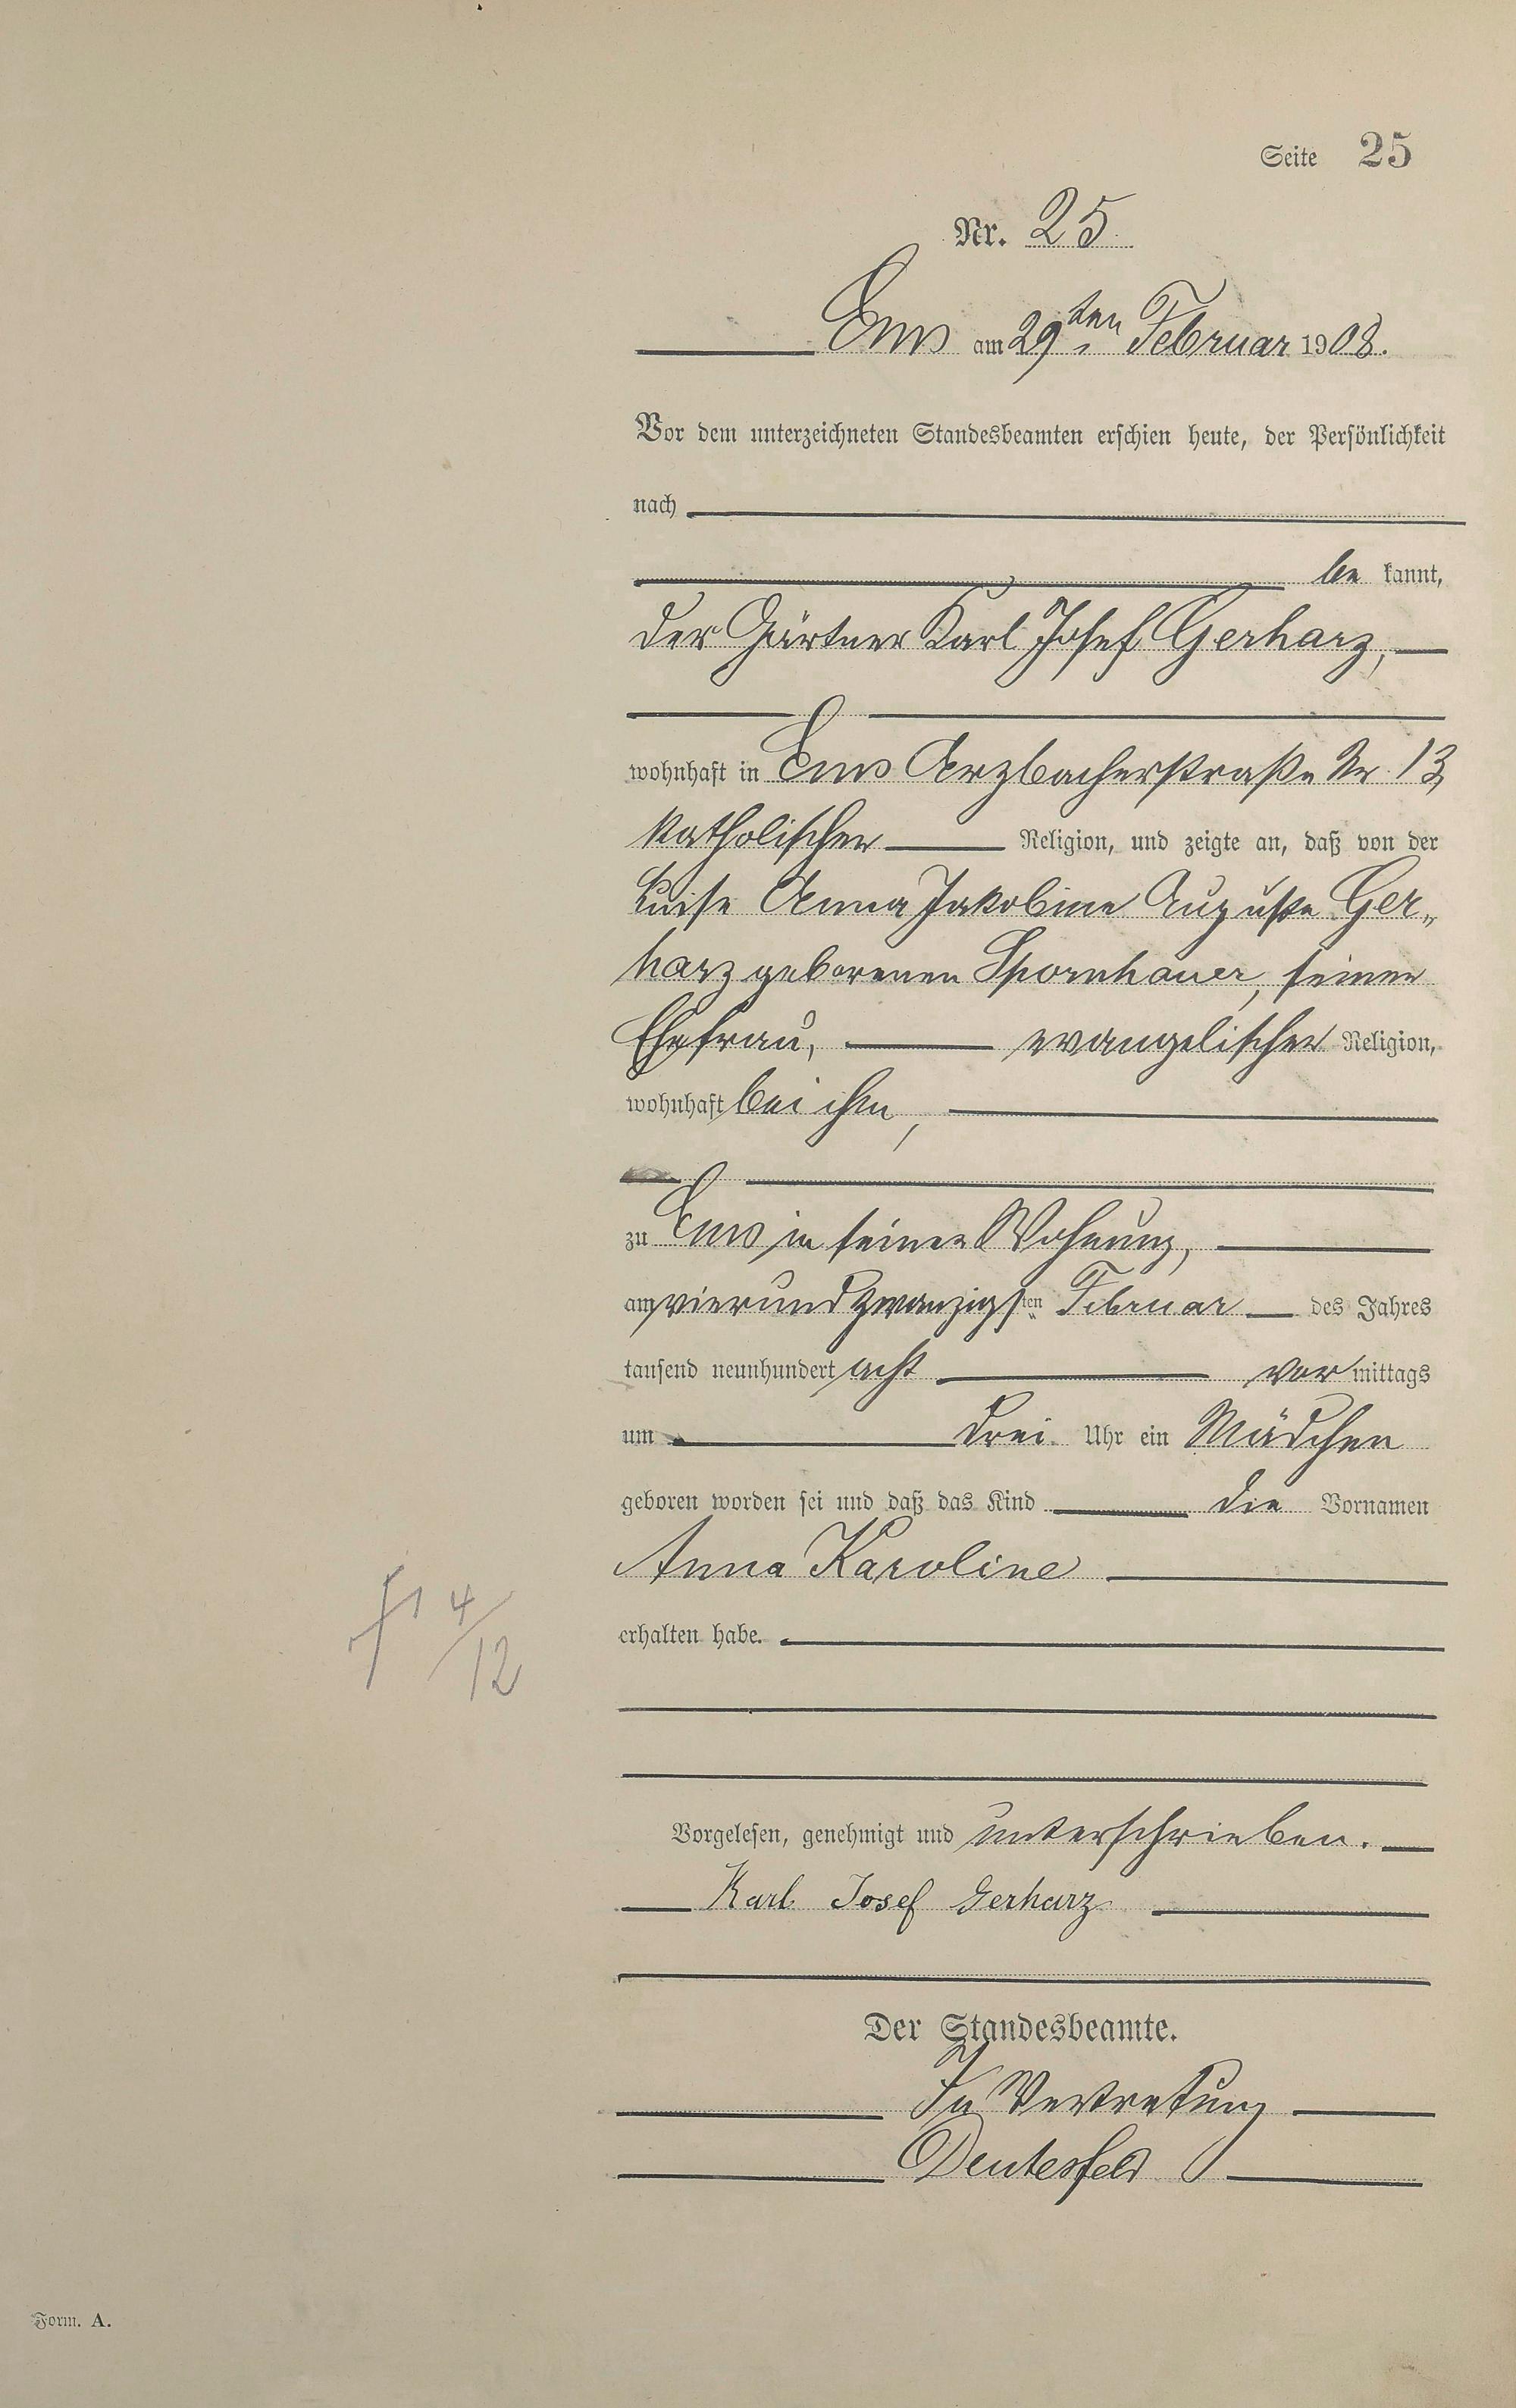 Seite 25
Nr. 25
Ems am 29ten Februar 1908.
Vor dem unterzeichneten Standesbeamten erschien heute, der Persönlichkeit
nach
be kannt,
der Gärtner Karl Josef Gerharz,
wohnhaft in Ems Arzbacherstraße Nr 13,
katholischer Religion, und zeigte an, daß von der
Luise Anna Jakobine Auguste Ger„
harz geborenen Spornhauer, seiner
Ehefrau, evangelischer Religion,
wohnhaft bei ihm,
zu Ems in seiner Wohnung,
am vierundzwanzigsten Februar des Jahres
tausend neunhundert acht vor mittags
um drei Uhr ein Mädchen
geboren worden sei und daß das Kind die Vornamen
Anna Karoline
erhalten habe.
4/12
Vorgelesen, genehmigt und unterschrieben.
Karl Josef Gerharz
Der Standesbeamte.
In Vertretung
Deutesfeld
Form. A.